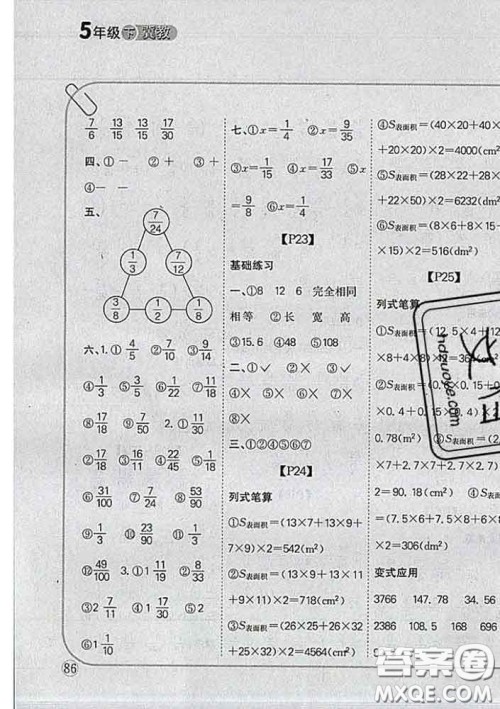 5年级 下 冀教
7/6 13/15 13/15 17/30
四、①－ ②＋ ③＋
④－
五、
7/24
1/3 7/12
3/8 1/2 1/8
六、1.①4/5 ②7/10 ③9/14
④1/3 ⑤3/5 ⑥1/22 ⑦11/18
⑧17/18 ⑨7/50 2.①11/30
②17/18 ③16/11 ④22/45 ⑤1/18
⑥31/100 ⑦7/24 ⑧53/90
⑨1/3 ⑩23/90 ⑪1/3
⑫49/100 3.①1 11/19 ②8/33
③2 7/11 ④1 17/30 ⑤2/5
⑥1 1/10
86
七、①x=1/4 ②x=9/35
③x=1/15 ④x=17/33 ⑤x
=9/8 ⑥x=1/4
【P23】
基础练习
一、①8 12 6 完全相同
相等 ②长 宽 高
③15.6 ④48 ⑤108
二、①✓ ②× ③✓
④× ⑤× ⑥× ⑦✓
⑧×
三、①②④⑤⑥⑦
【P24】
列式笔算
①S表面积=(13×7+13×9+
7×9)×2=542(cm²)
②S表面积=(13×9+13×11
+9×11)×2=718(cm²)
③S表面积=(26×25+26×32
+25×32)×2=4564(cm²)
④S表面积=(40×20+40×
+20×20)×2=4000(cm²)
⑤S表面积=(28×22+28×
+22×50)×2=6232(dm²)
⑥S表面积=(8×6+8×15+
×15)×2=516(dm²)
【P25】
列式笔算
①S表面积=(12.5×4+12
×8+4×8)×2=36
×0.4+0.15×0.4)×2
0.78(m²) ③S表面积=
×7+2.7×7+2.7×2.7)
2=90.58(m²) ④S表面积
=(7.5×6+7.5×8+
×2=306(dm²)
变式应用
3766 147.78 34.56
2386 108.5 168 696
hdzuoye.com
答案圈
MXQE.COM